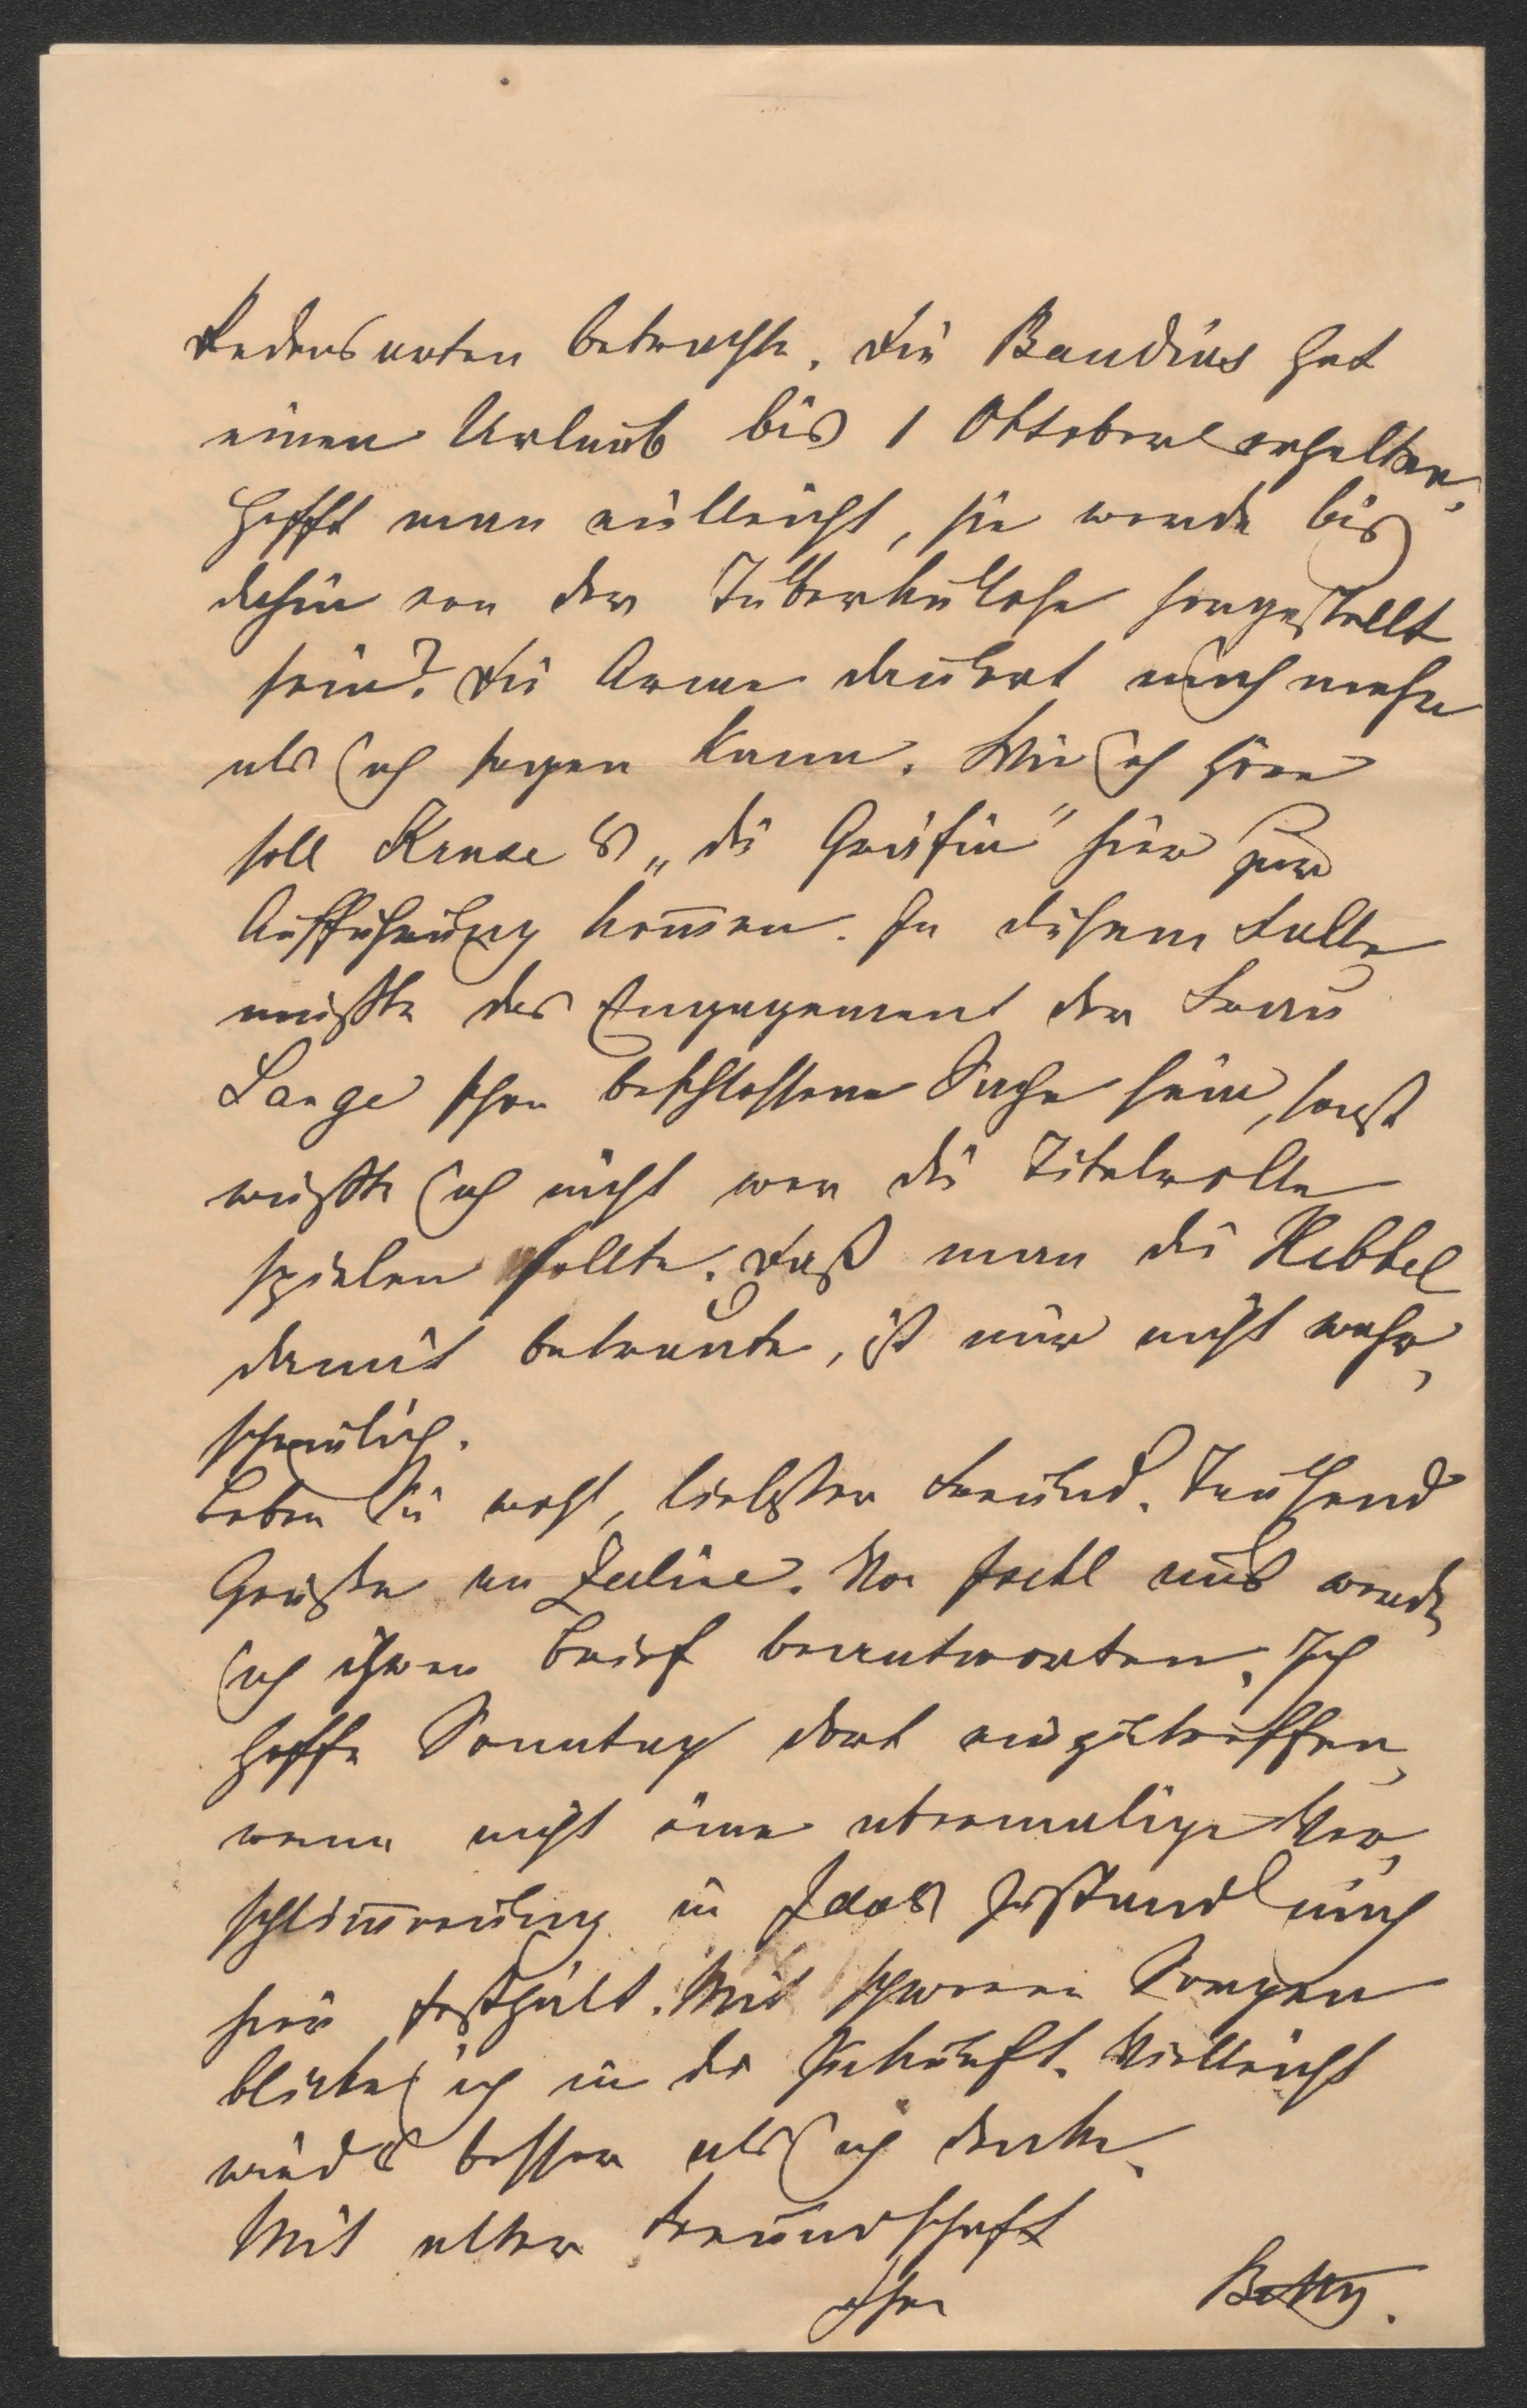 Redensarten betrachte. Die Baudius hat
einen Urlaub bis 1 Oktober erhalten.
Hofft man vielleicht, sie werde bis
dahin von der Tuberkulose hergestellt
sein? Die Arme dauert mich mehr
als ich sagen kann. Wie ich höre
soll Kruse's „die Gräfin" hier zur
Aufführung kommen. In diesem Falle
müßte das Engagement der Frau
Lange schon beschlossene Sache sein, sonst
wüßte ich nicht wer die Titelrolle
spielen sollte. Daß man die Hebbel
damit betraute, ist mir nicht wahr-
scheinlich.
Leben Sie wohl, liebster Freund. Tausend
Grüße an
ich ihren Brief beantworten. Ich
hoffe Sonntag dort einzutreffen,
wenn nicht eine abermalige Ver-
schlimmerung in Idas Zustand mich
hier festhält. Mit schweren Sorgen
blicke ich in die Zukunft. Vielleicht
wird's besser als ich denke.
Mit alter Freundschaft
Ihre Betty.